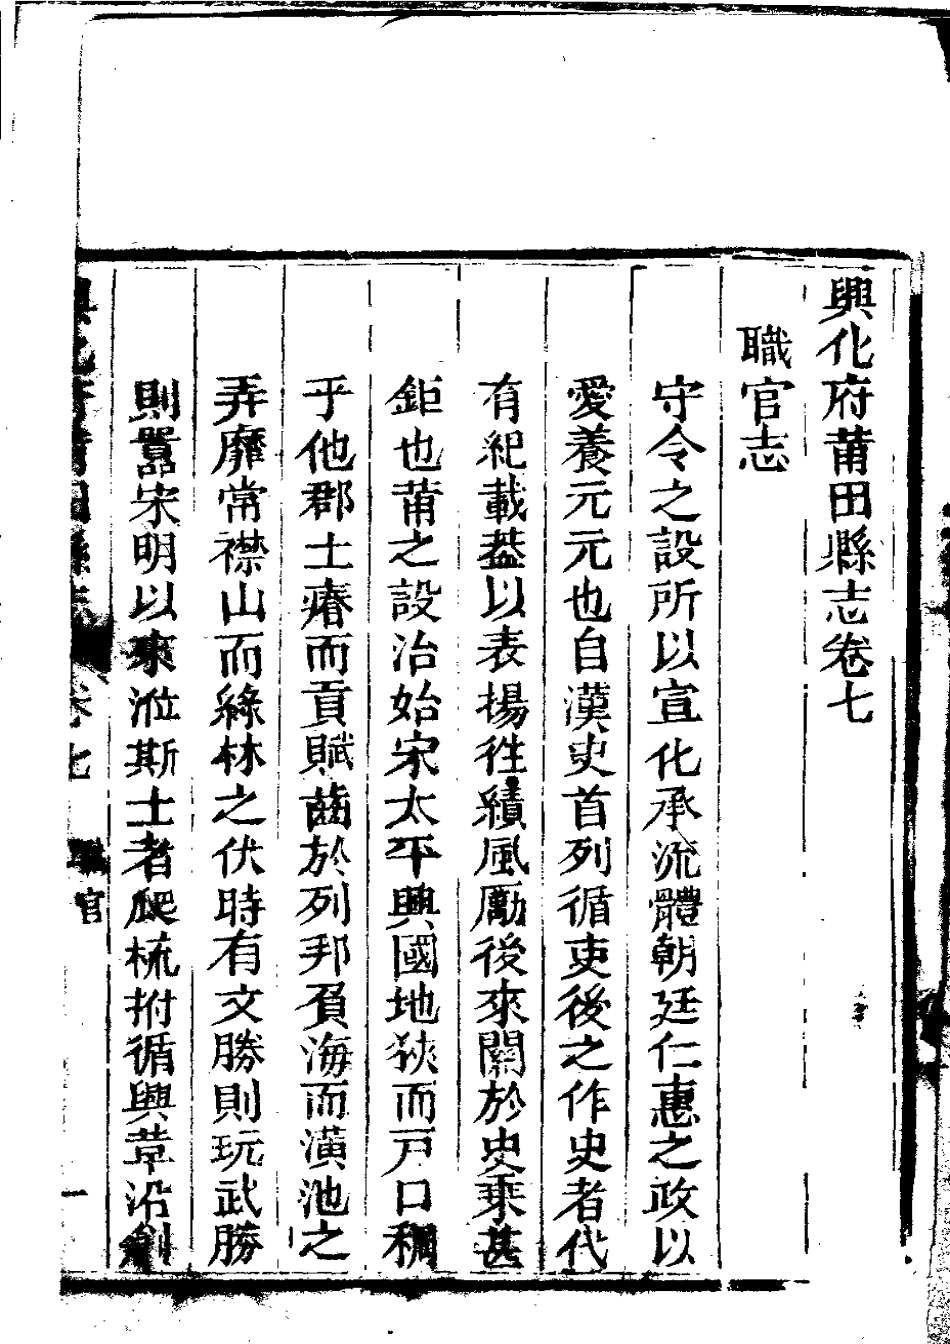 興化府莆田縣志卷七
職官志
守令之設所以宣化承流體朝廷仁惠之政以
愛養元元也自漢史首列循吏後之作史者代
有紀載葢以表揚徃績風勵後來關於史乘甚
鉅也莆之設治始宋太平興國地狹而戸口稠
于他郡土瘠而貢賦齒於列邦負海而潢池之
弄靡常襟山而綠林之伏時有文勝則玩武勝
則嚚宋明以來涖斯土者爬梳拊循興革沿創
興化府莆田縣志 卷七 職官 一